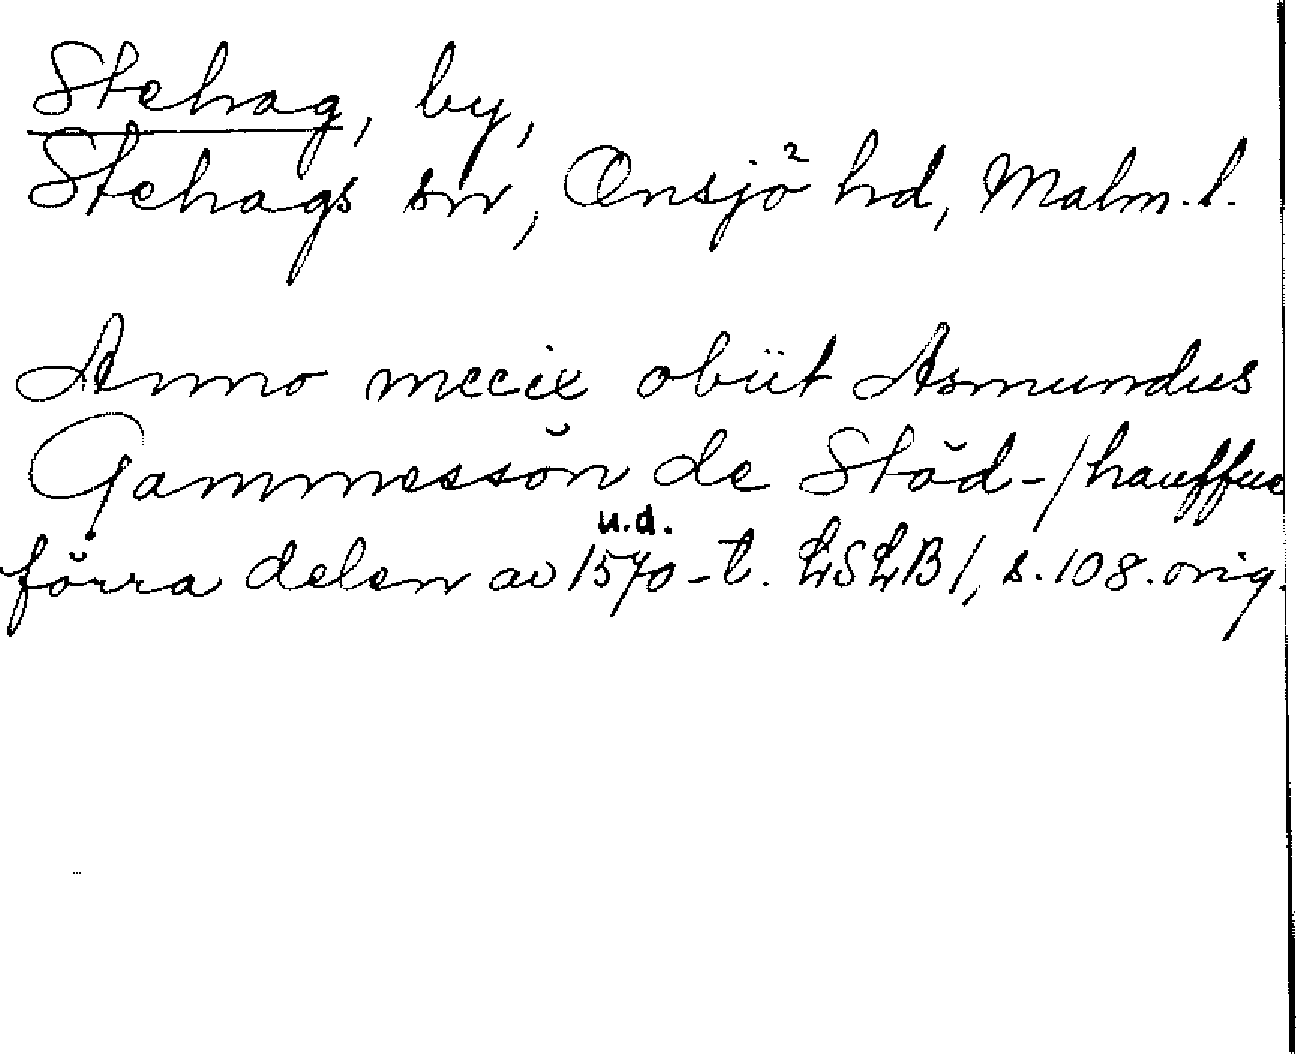 Stehag, by,
Stehags sn, Onsjö hd, Malm. l.
Anno mccix obiit Asmundus
Gammessŏn de Stŏd-/hauffue
förra delen av 1570-t. LSLB 1, s. 108. orig.
u.d.